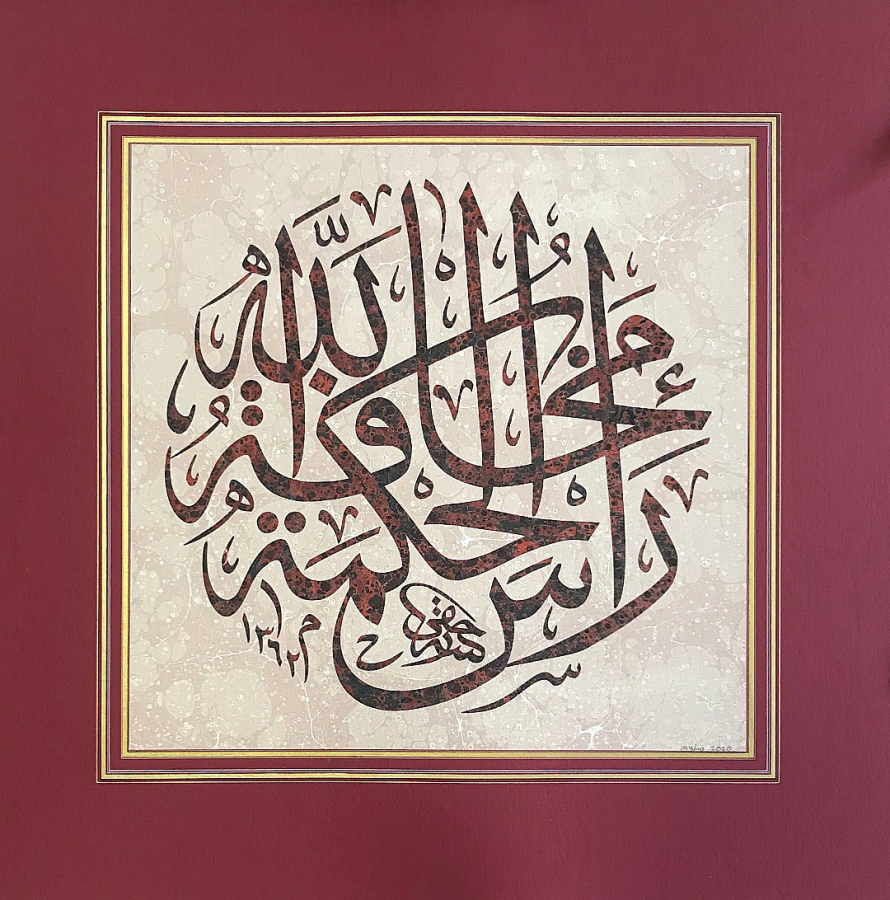 رأس الحكمة مخافة الله
حقي
١٣٦٢
2020